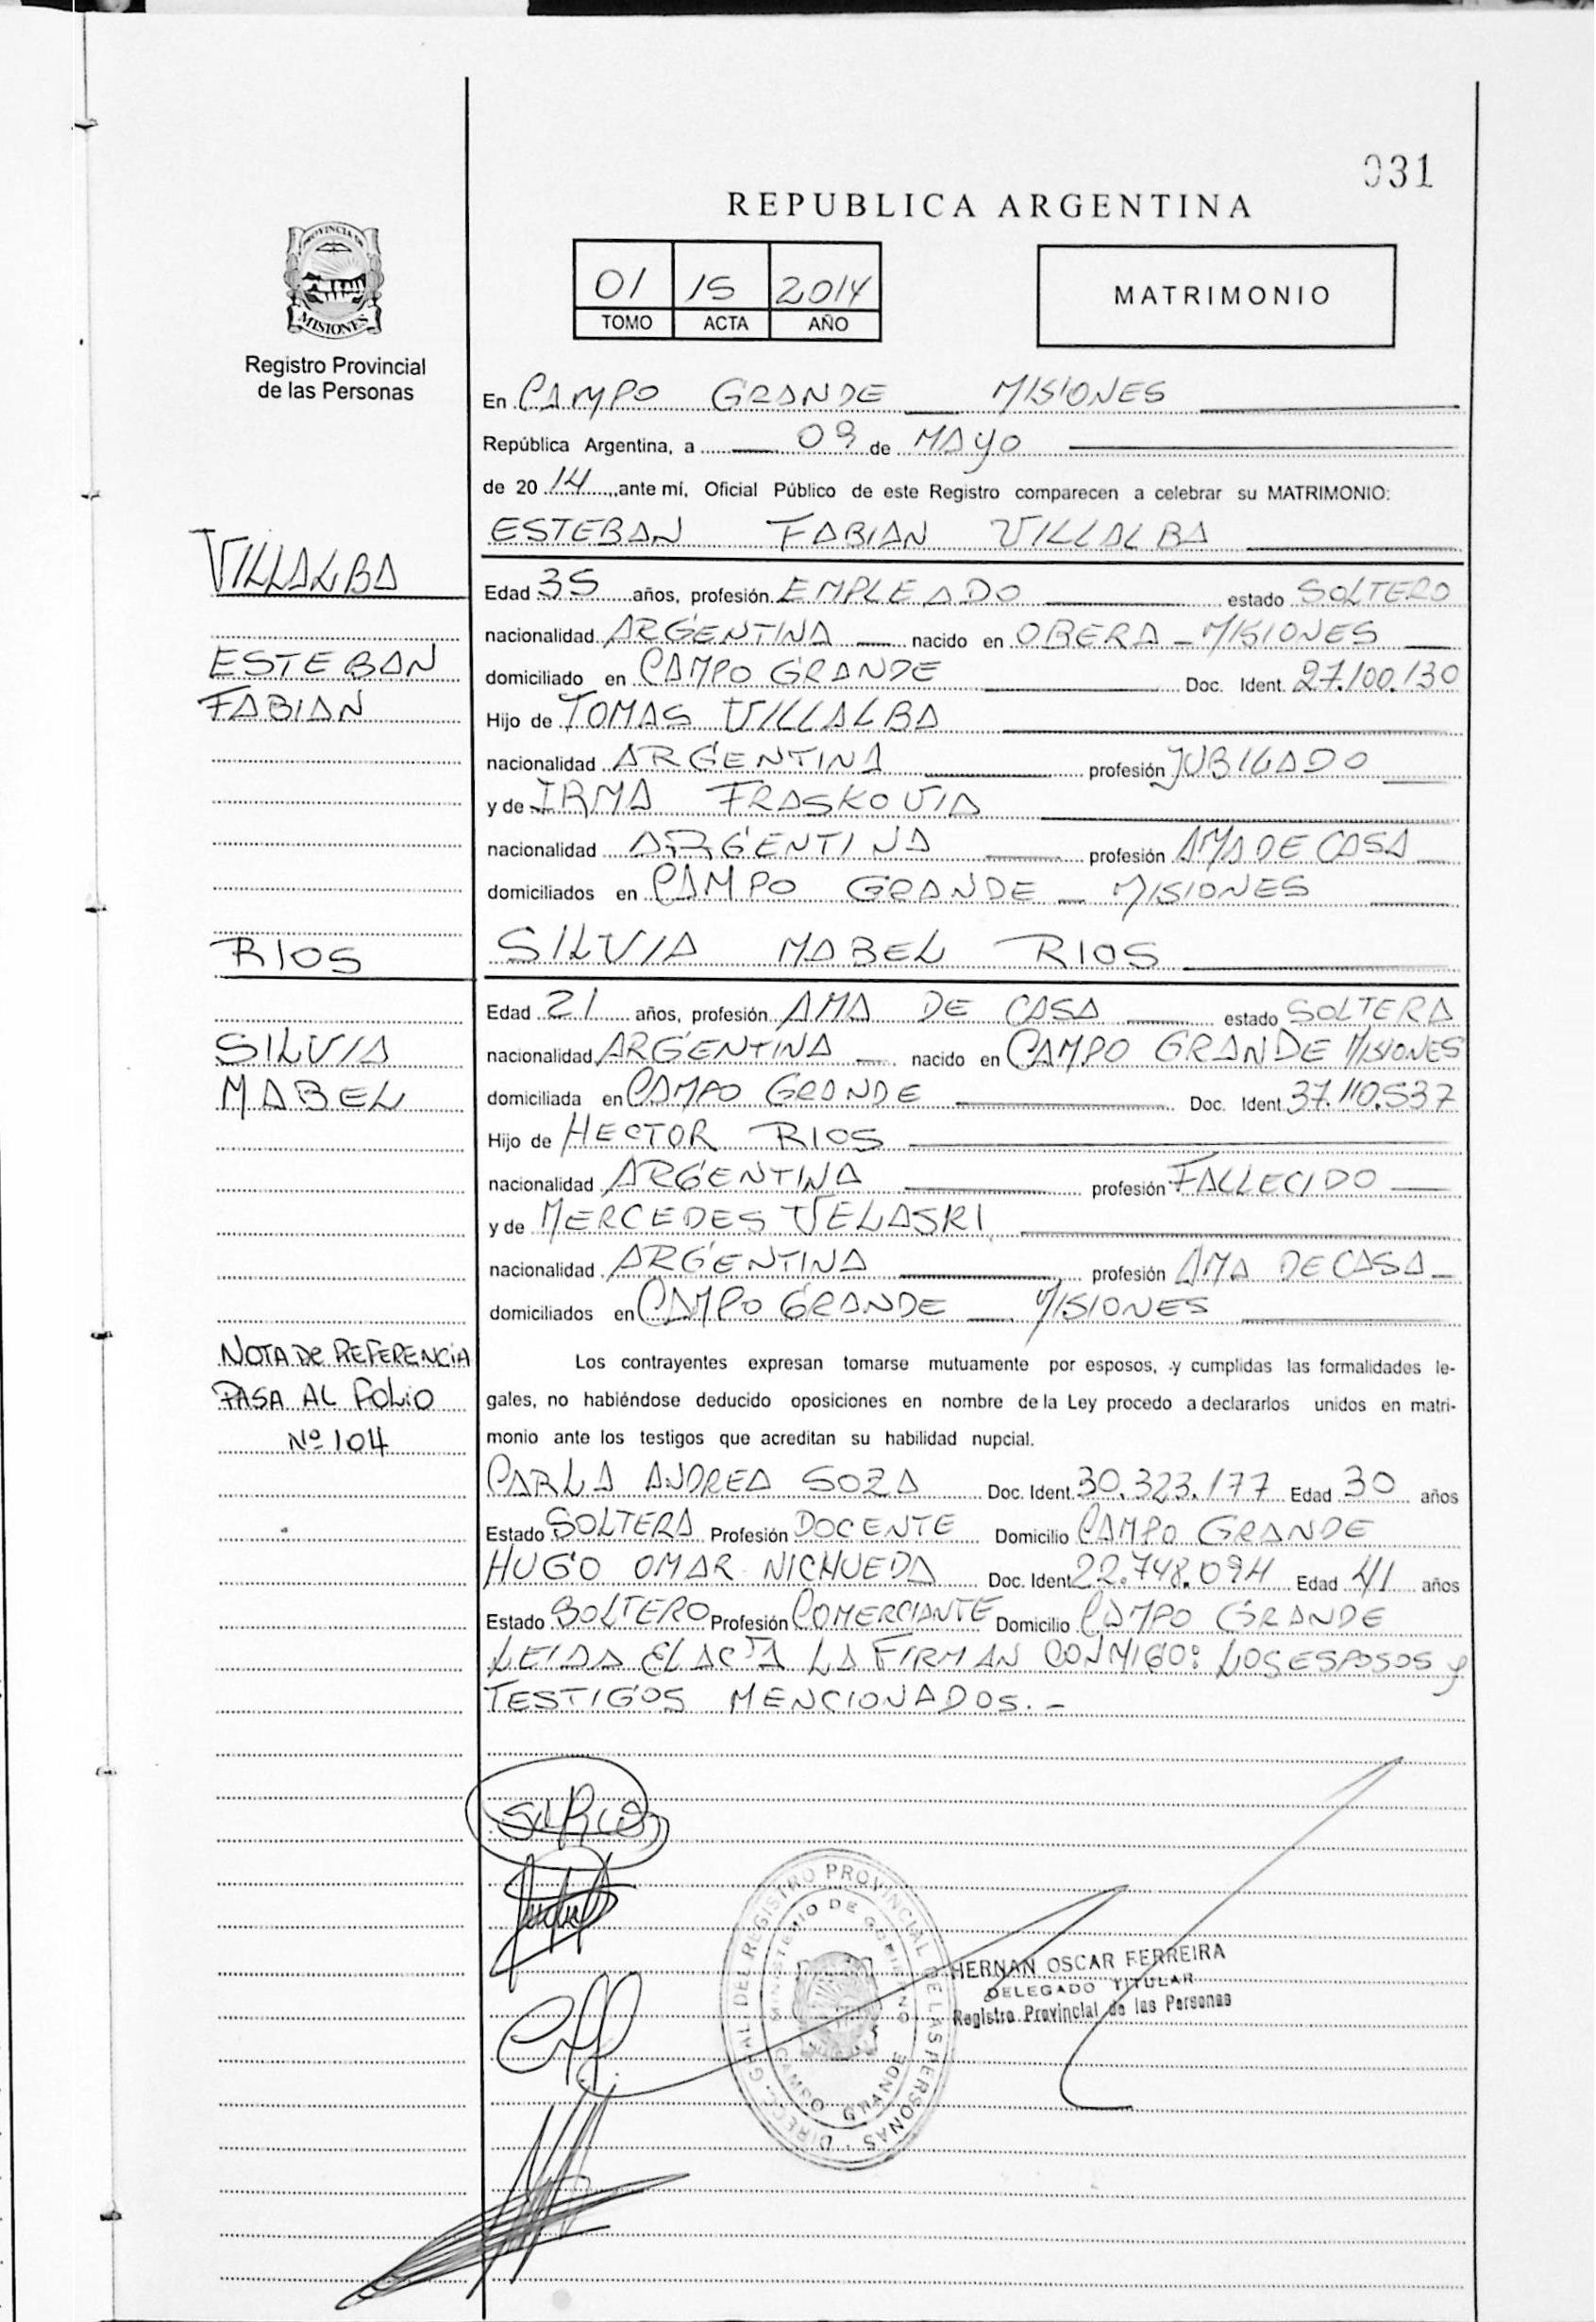 031
REPUBLICA ARGENTINA
PROVINCIA DE
MISIONES
Registro Provincial
de las Personas
01 15 2014
TOMO ACTA AÑO
MATRIMONIO
En CAMPO GRANDE MISIONES
República Argentina, a 09 de MAYO
de 20 14, ante mí, Oficial Público de este Registro comparecen a celebrar su MATRIMONIO:
ESTEBAN FABIAN VILLALBA
VILLALBA
ESTEBAN
FABIAN
Edad 35 años, profesión EMPLEADO estado SOLTERO
nacionalidad ARGENTINA nacido en OBERA - MISIONES
domiciliado en CAMPO GRANDE Doc. Ident. 27.100.130
Hijo de TOMAS VILLALBA
nacionalidad ARGENTINA profesión JUBILADO
y de IRMA FRASKOVIA
nacionalidad ARGENTINA profesión AMA DE CASA
domiciliados en CAMPO GRANDE MISIONES
RIOS
SILVIA MABEL RIOS
SILVIA
MABEL
Edad 21 años, profesión AMA DE CASA estado SOLTERA
nacionalidad ARGENTINA nacido en CAMPO GRANDE MISIONES
domiciliada en CAMPO GRANDE Doc. Ident. 37.110.537
Hijo de HECTOR RIOS
nacionalidad ARGENTINA profesión FALLECIDO
y de MERCEDES VELASRI
nacionalidad ARGENTINA profesión AMA DE CASA
domiciliados en CAMPO GRANDE MISIONES
NOTA DE REFERENCIA
PASA AL FOLIO
Nº 104
Los contrayentes expresan tomarse mutuamente por esposos, y cumplidas las formalidades le-
gales, no habiéndose deducido oposiciones en nombre de la Ley procedo a declararlos unidos en matri-
monio ante los testigos que acreditan su habilidad nupcial.
CARLA ANDREA SOZA Doc. Ident. 30.323.177 Edad 30 años
Estado SOLTERA Profesión DOCENTE Domicilio CAMPO GRANDE
HUGO OMAR NICHUEDA Doc. Ident 22.748.094 Edad 41 años
Estado SOLTERO Profesión COMERCIANTE Domicilio CAMPO GRANDE
LEIDA EL ACTA LA FIRMAN CONMIGO: LOS ESPOSOS y
TESTIGOS MENCIONADOS. -
DIRECC. GRAL. DEL REGISTRO PROVINCIAL DE LAS PERSONAS
MINISTERIO DE GOBIERNO
CAMPO GRANDE
HERNAN OSCAR FERREIRA
DELEGADO TITULAR
Registro Provincial de las Personas